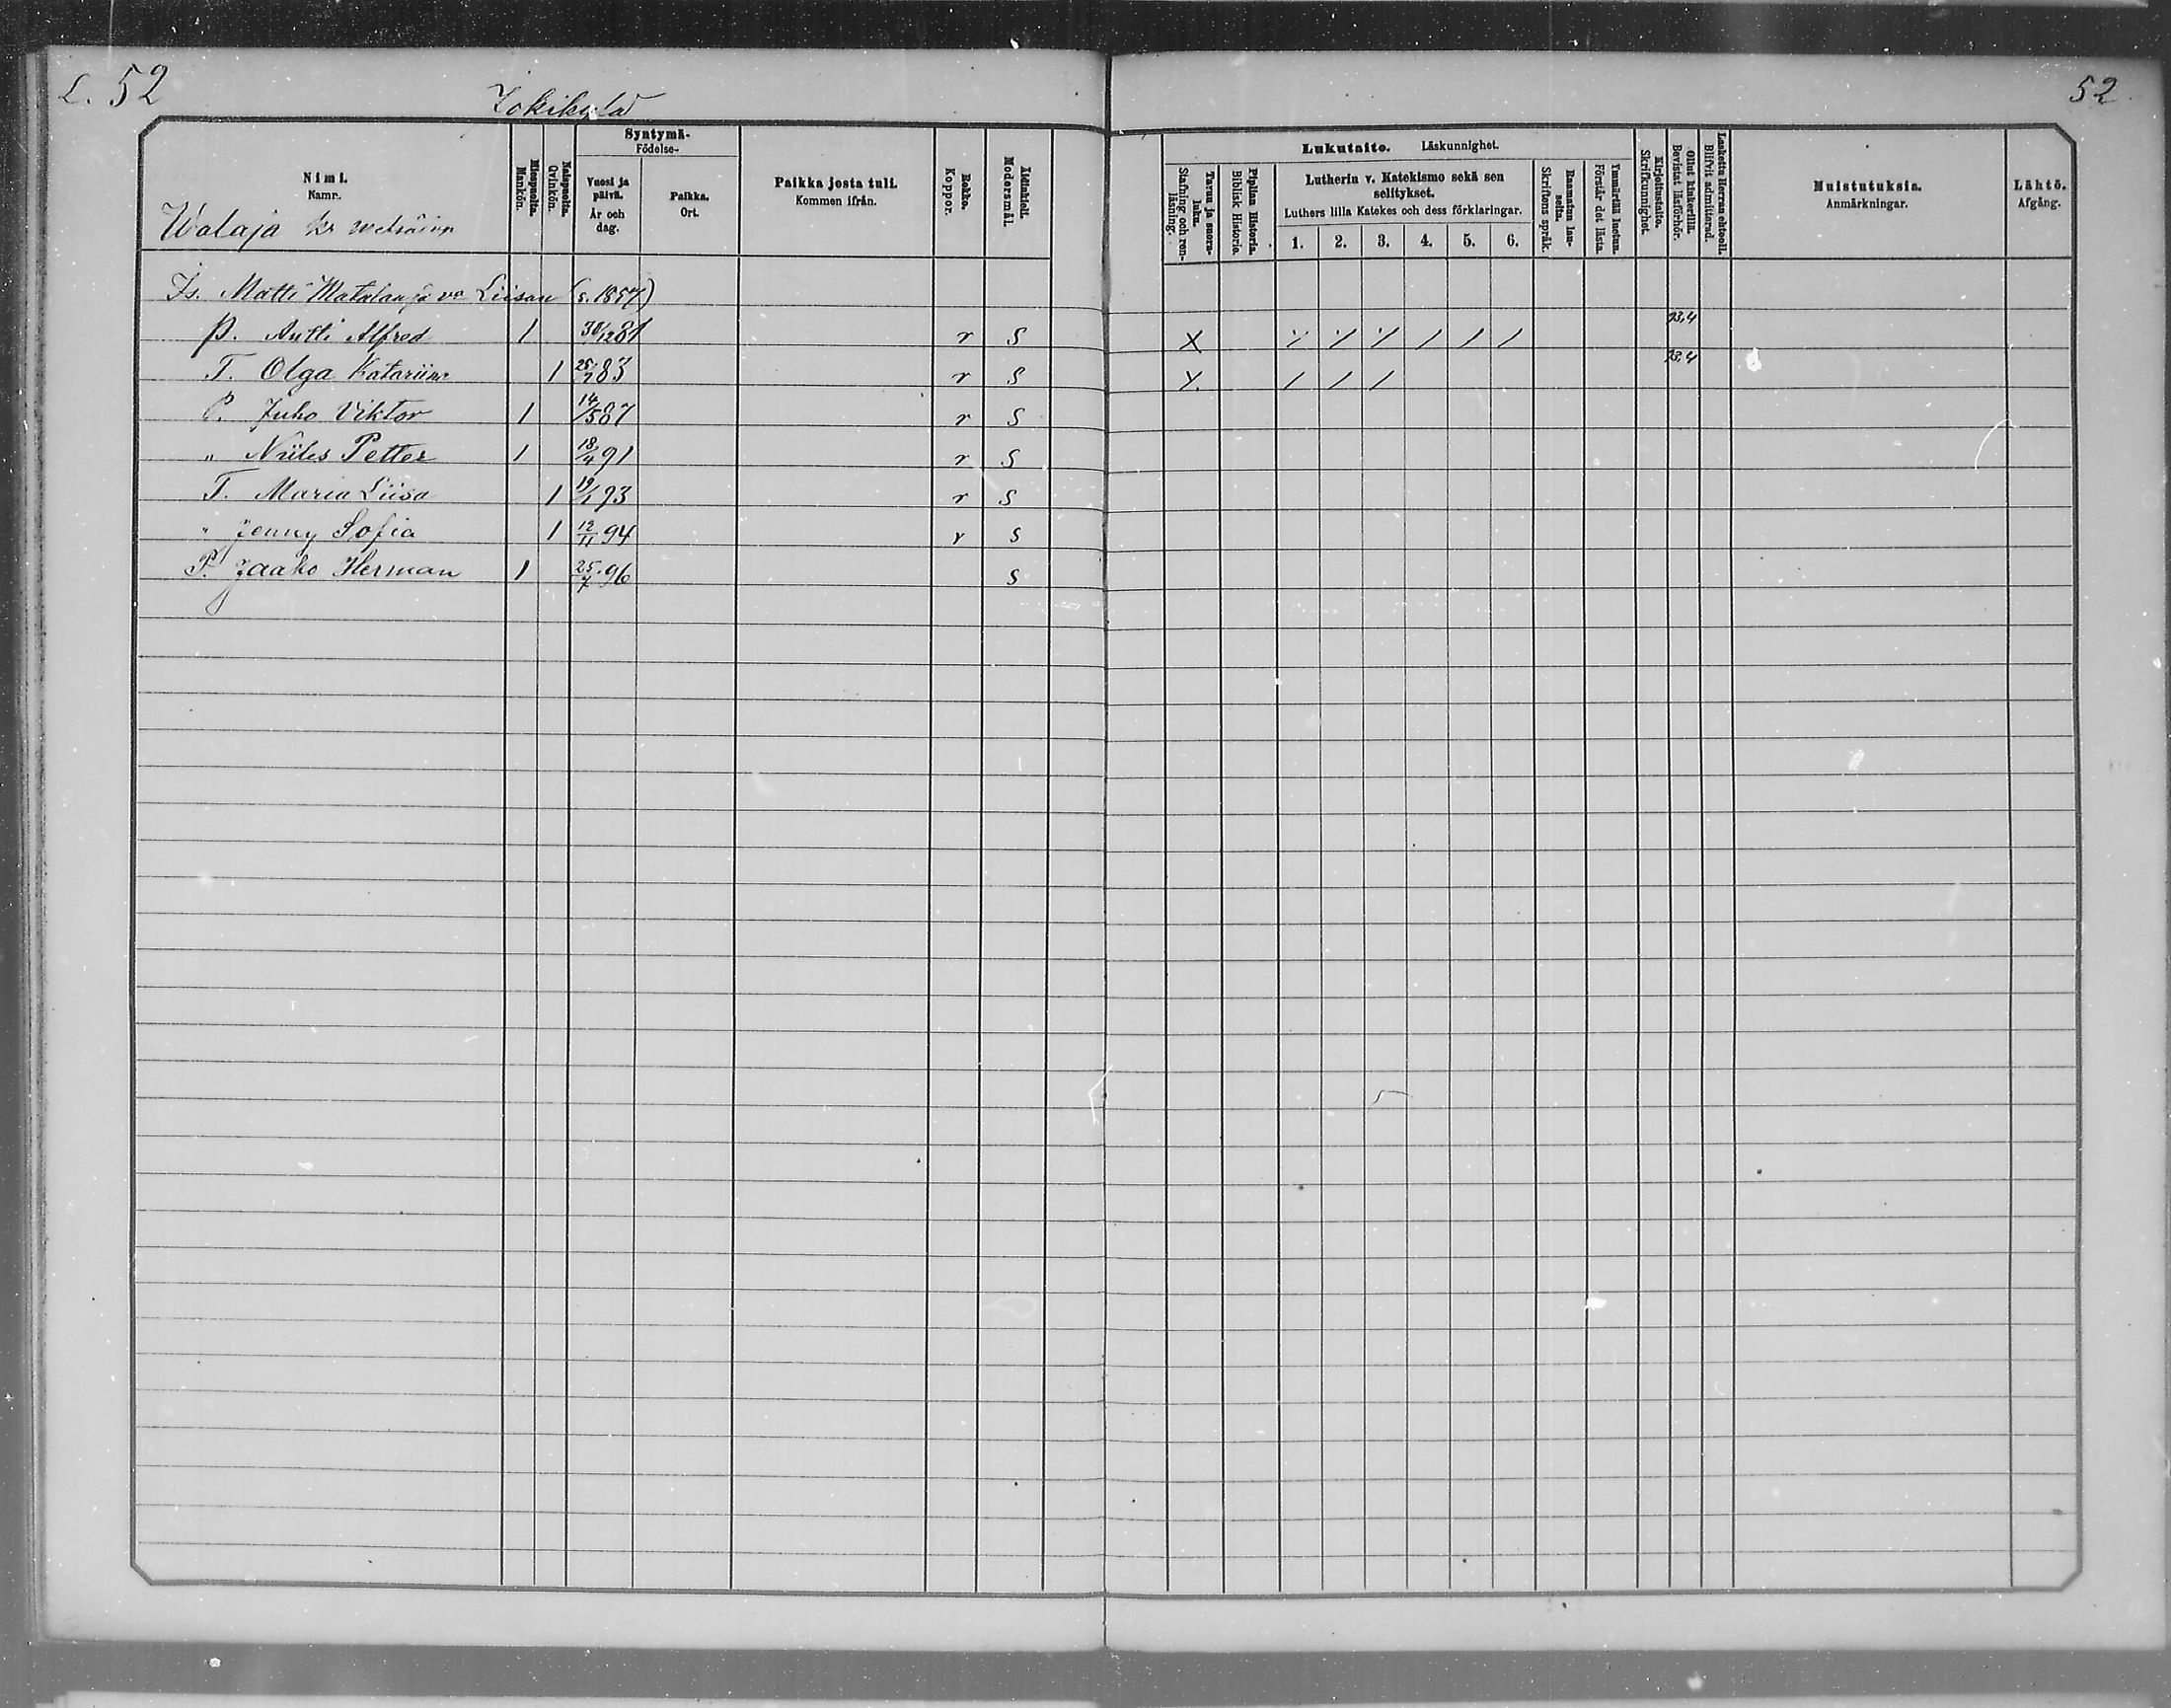 L. 52
Jokikylä
52
Syntymä-
Födelse-
Nimi.
Namn.
Miespuolta.
Mankön.
Naispuolta.
Qvinkön.
Vuosi ja päivä.
År och dag.
Paikka.
Ort.
Paikka josta tuli.
Kommen ifrån.
Rokko.
Koppor.
Äidinkieli.
Modersmål.
Lukutaito. Läskunnighet.
Tavuu ja suora-luku.
Stafning och ren-läsning.
Piplian Historia.
Biblisk Historie.
Lutherin v. Katekismo sekä sen selitykset.
Luthers lilla Katekes och dess förklaringar.
1. 2. 3. 4. 5. 6.
Raamatun lau-seita.
Skriftens språk.
Ymmärtää luetun.
Förstår det lästa.
Kirjoitustaito.
Skrifkunnighet.
Ollut kinkerillä.
Bevistat läsförhör.
Laskettu Herran ehtooll.
Blifvit admitterad.
Muistutuksia.
Anmärkningar.
Lähtö.
Afgång.
Walaja kr
Is. Matti Matalan ja vo Liisan (s. 1857)
P. Antti Alfred 1 30/12 81 r S X / / / / / / 93,4
T. Olga Katariina 1 25/7 83 r S X / / / 93,4
P. Juho Viktor 1 14/5 87 r S
" Niiles Petter 1 18/4 91 r S
T. Maria Liisa 1 19/1 93 r S
" Jenny Sofia 1 12/11 94 r S
P. Jaako Herman 1 25/7 96 S